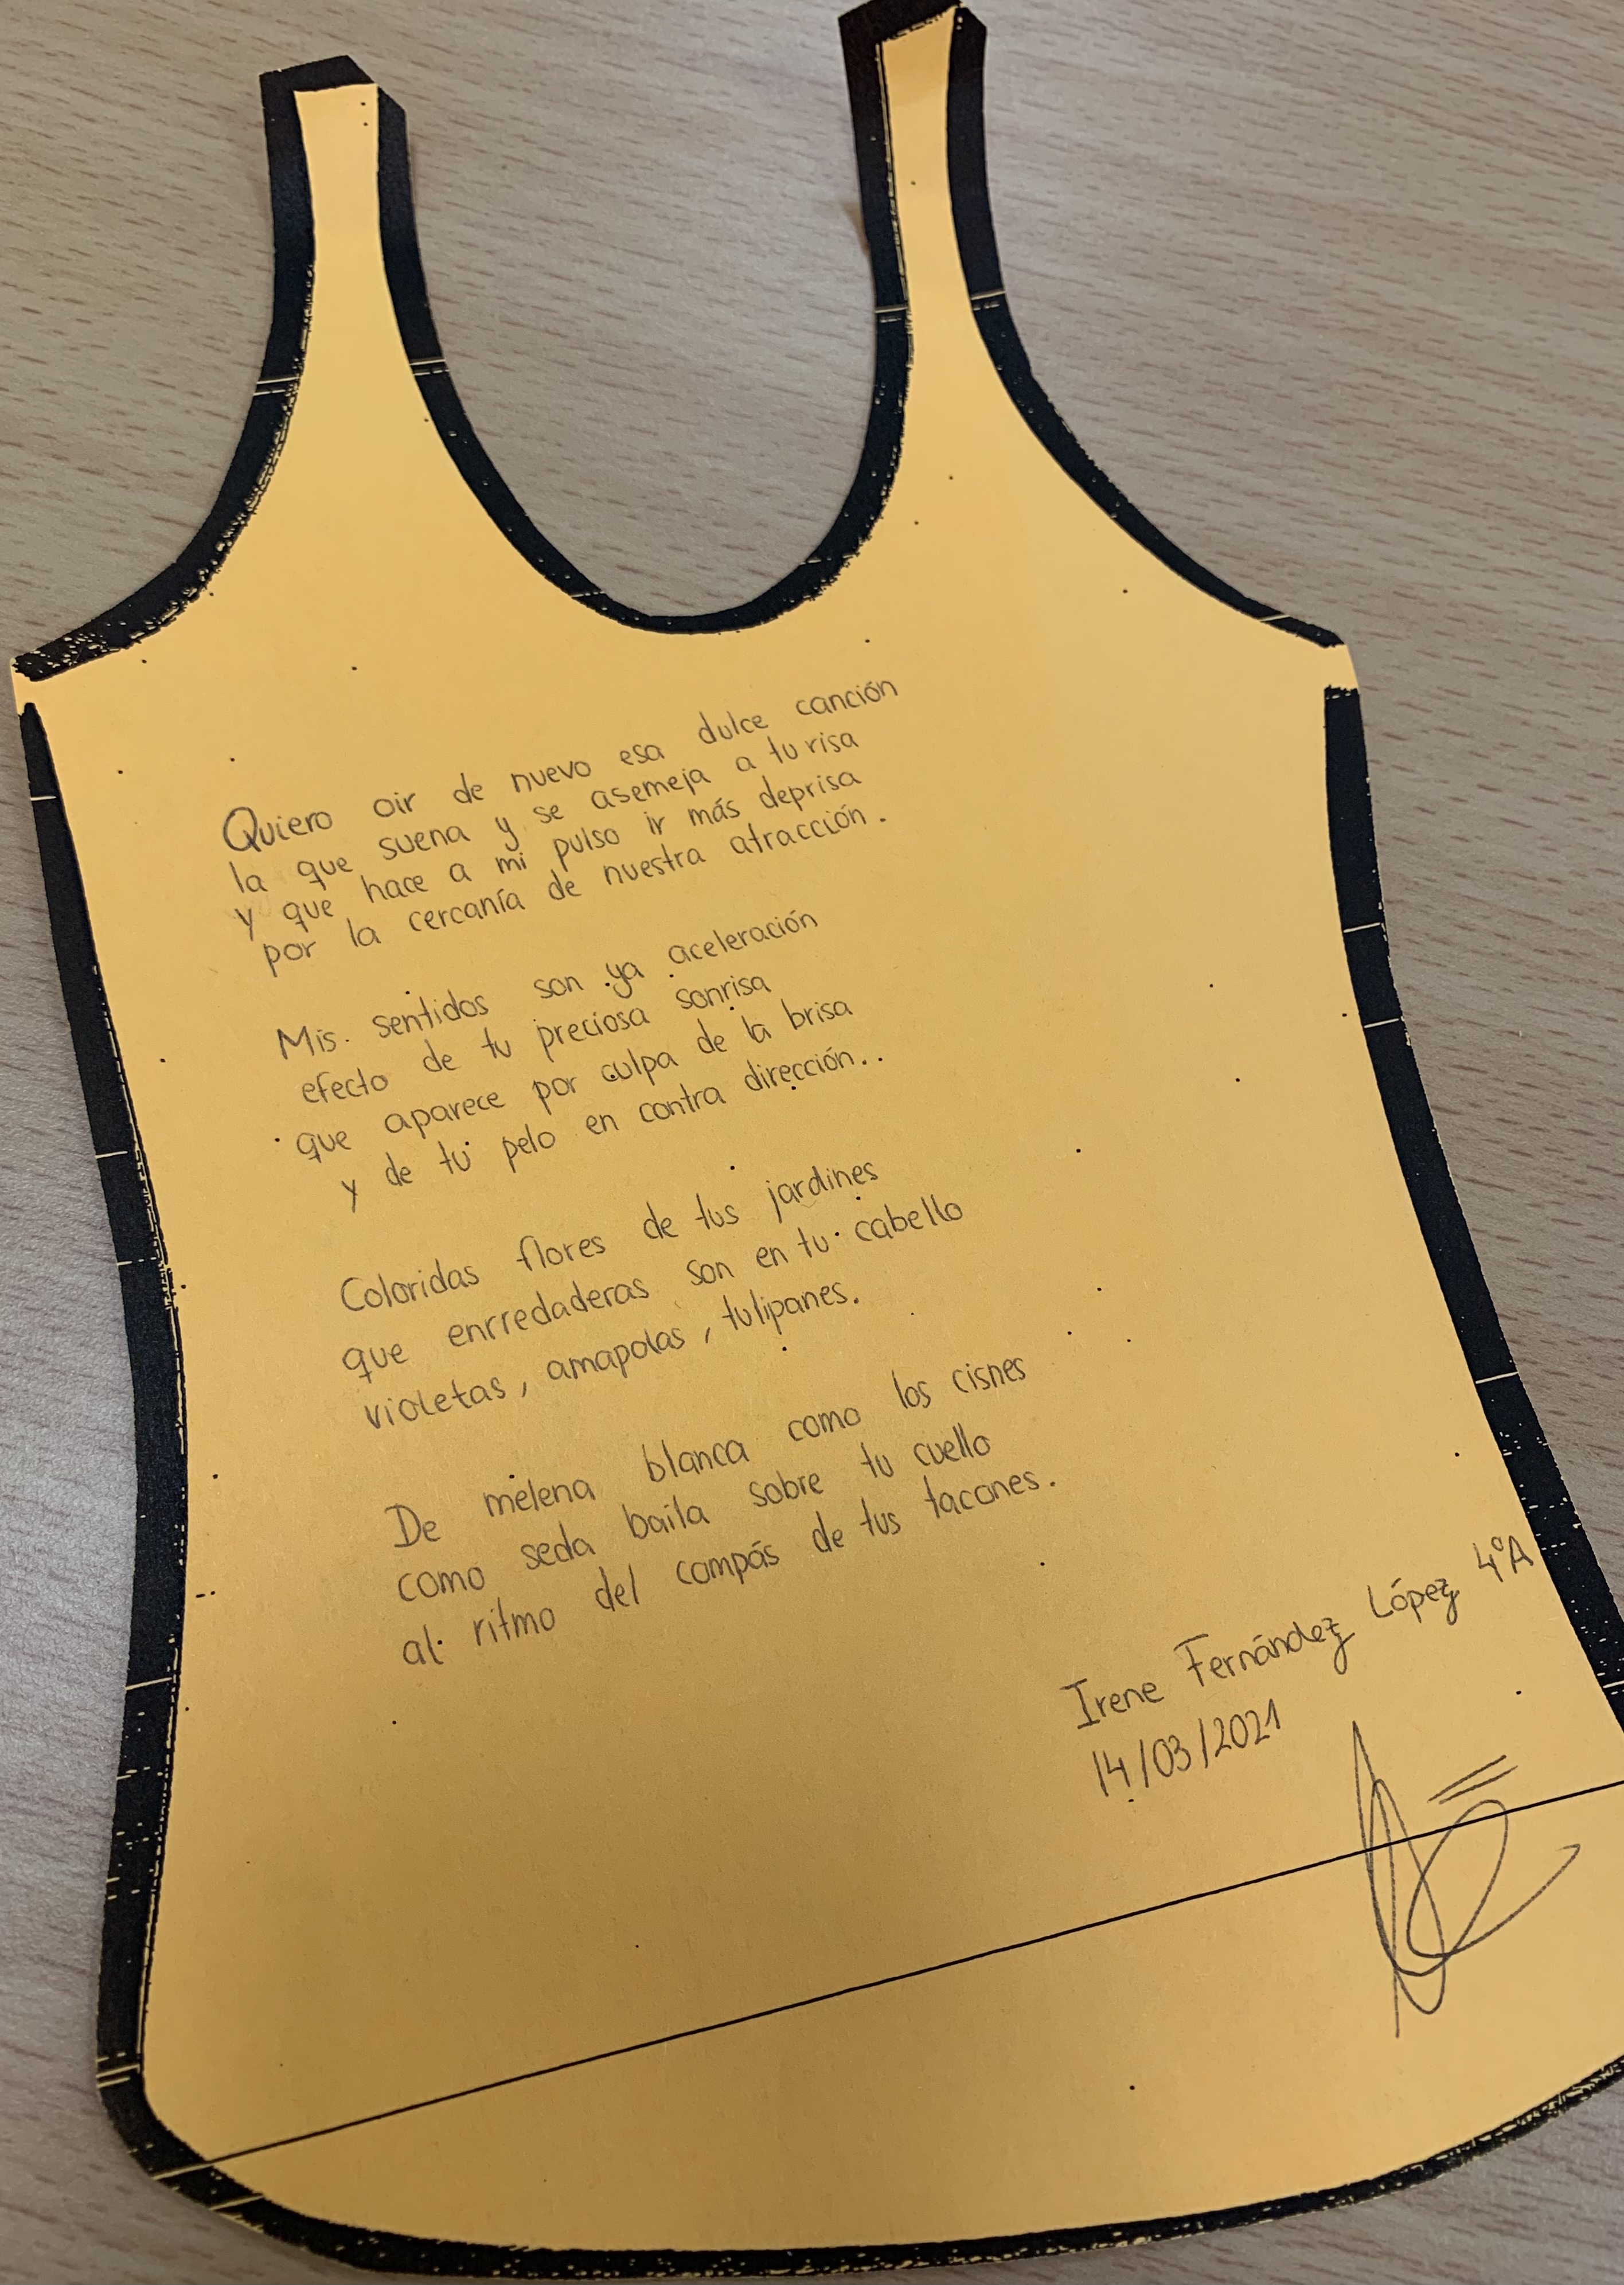 Quiero oir de nuevo esa dulce canción
la que suena y se asemeja a tu risa
y que hace a mi pulso ir más deprisa
por la cercanía de nuestra atracción.
Mis sentidos son ya aceleración
efecto de tu preciosa sonrisa
que aparece por culpa de la brisa
y de tu pelo en contra dirección..
Coloridas flores de tus jardines
que enrredaderas son en tu cabello
violetas, amapolas, tulipanes.
De melena blanca como los cisnes
como seda baila sobre tu cuello
al ritmo del compás de tus tacones.
Irene Fernández López 4ºA
14/03/2021